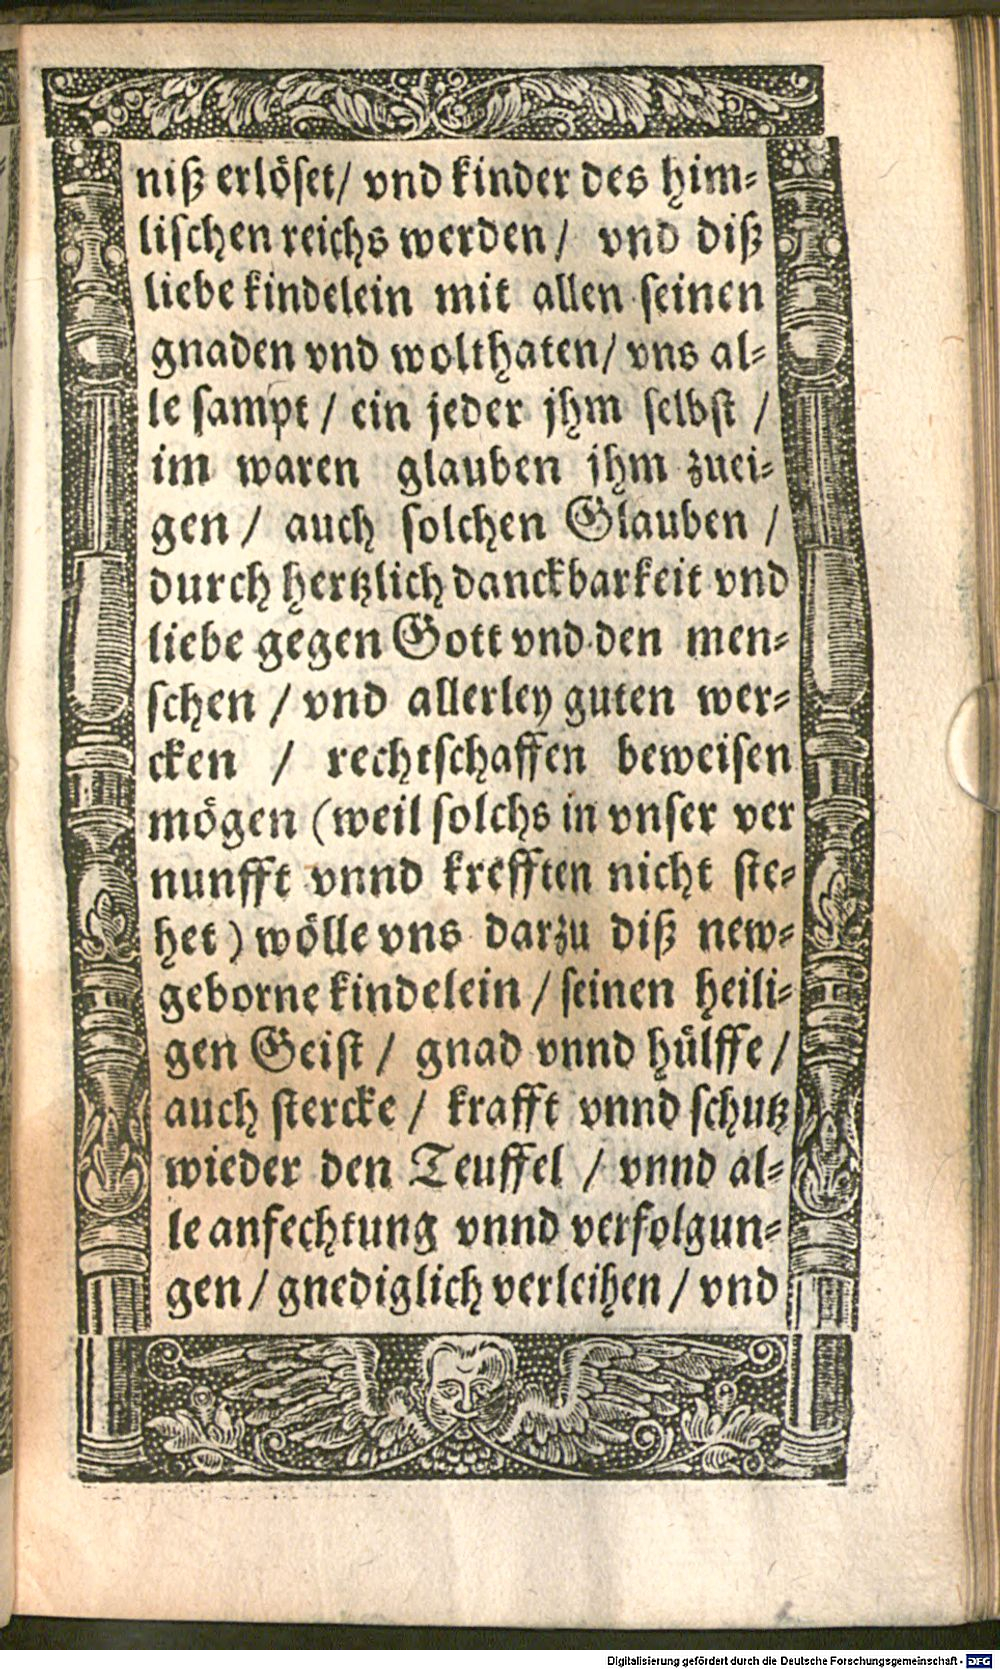 niß erlöset/ vnd kinder des him-
lischen reichs werden/ vnd diß
liebe kindelein mit allen seinen
gnaden vnd wolthaten/ vns al-
le sampt / ein jeder jhm selbst /
im waren glauben jhm zuei-
gen / auch solchen Glauben /
durch hertzlich danckbarkeit vnd
liebe gegen Gott vnd den men-
schen / vnd allerley guten wer-
cken / rechtschaffen beweisen
mögen (weil solchs in vnser ver
nunfft vnnd krefften nicht ste-
het) wölle vns darzu diß new-
geborne kindelein / seinen heili-
gen Geist / gnad vnnd hülffe /
auch stercke / krafft vnnd schutz
wieder den Teuffel / vnnd al-
le anfechtung vnnd verfolgun-
gen / gnediglich verleihen / vnd
Digitalisierung gefördert durch die Deutsche Forschungsgemeinschaft - DFG